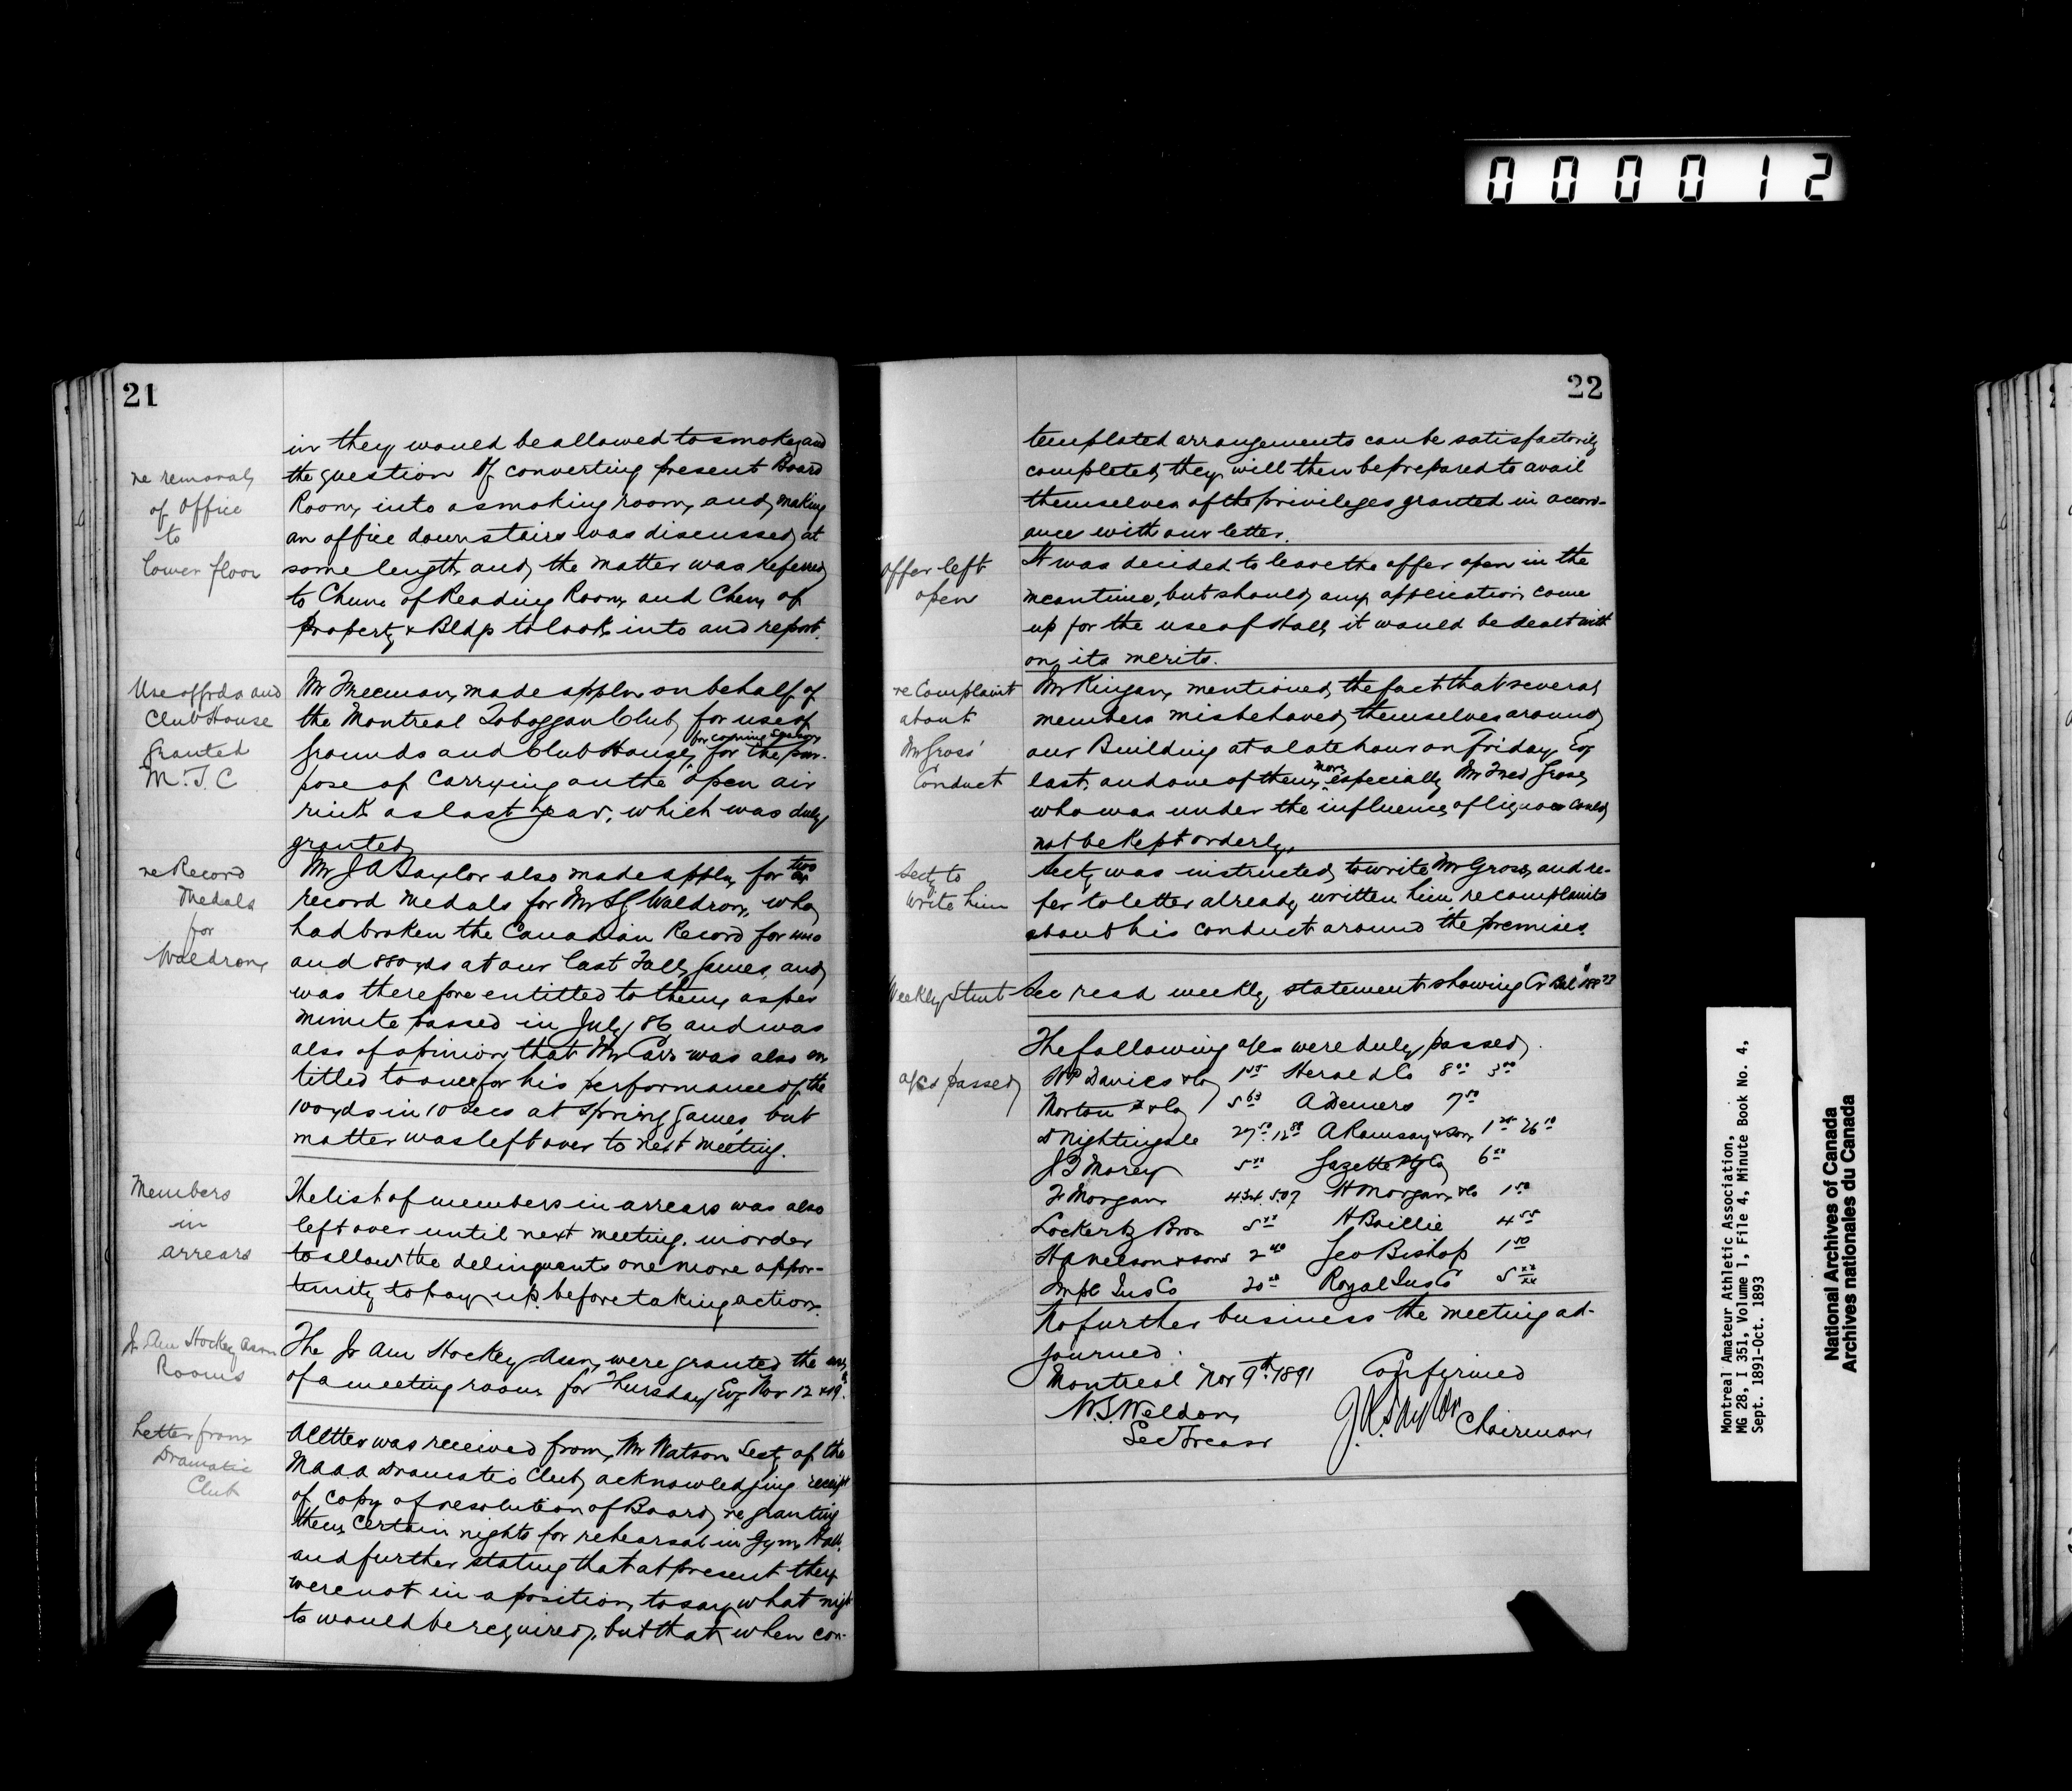 000012
21
in they would be allowed to smoke, and
the question of converting present Board
Room into a smoking room, and making
an office downstairs was discussed at
some length and the matter was referred
to Chmn of Reading Room and Chmn of
Property & Bldgs to look into and report.
re removal
of Office
to
lower floor
Mr Freeman made appln on behalf of
the Montreal Toboggan Club for use of
grounds and Club House, for coming Season for the pur-
pose of carrying on the open air
rink as last year, which was duly
granted
Use of grds and
Club House
granted
M.T.C
Mr J A Taylor also made appln for two
record medals for Mr S G Waldron, who
had broken the Canadian Record for
and 880 yds at our last Fall games and
was therefore entitled to them as per
minute passed in July 86 and was
also of opinion that Mr Carr was also en
titled to one for his performance of the
100 yds in 10 Secs at Spring games, but
matter was left over to next meeting.
re Record
Medals
for
Waldron
The list of members in arrears was also
left over until next meeting. in order
to allow the delinquents one more oppor-
tunity to pay up. before taking action.
Members
in
arrears
The Jr Am Hockey Assn were granted the use
of a meeting room for Thursday Evg Nov 12 & 19.
Jr Am Hockey Assn
Rooms
A letter was received from Mr Watson Secty of the
MAAA Dramatic Club acknowledging receipt
of copy of resolution of Board, re granting
them certain nights for rehearsal in Gym Hall
and further stating that at present they
were not in a position to say what nigh
ts would be required, but that when con-
Letter from
Dramatic
Club
22
templated arrangements can be satisfactorily
completed they will then be prepared to avail
themselves of the privileges granted in accord-
ance with our letter.
It was decided to leave the offer open in the
meantime, but should any application come
up for the use of Hall it would be dealt with
on its merits.
offer left
open
Mr Kingan mentioned the fact that several
members misbehaved themselves around
our Building at a late hour on Friday Evg
last, and one of them more especially Mr Fred Gross,
who was under the influence of liquor could
not be kept orderly.
re Complaint
about
Mr Gross'
Conduct
Secty was instructed to write Mr Gross and re-
fer to letter already written him re complaints
about his conduct around the premises.
Secty to
write him
Weekly Stmt
Sec read weekly statement showing Cr Bal
The following a/cs were duly passed.
a/cs passed
W Davies & Co Herald Co 8 00 3 00
Morton & Co 5 63 A Demers 7 50
Nightingale A Ramsay & Son 26 10
Morey 5 00 Gazette Ptg Co 6 00
F Morgan 4.34 5.07 H Morgan & Co 1 50
Lockerby Bros H Baillie 4 55
H A Nelson & Sons 2 40 Geo Bishop 1 50
Impl Ins Co 20 00 Royal Ins Co 5 xx/xx
No further business the meeting ad-
journed.
Montreal Nov 9th 1891 Confirmed
W.S. Weldon
Sec Treas
J.A. Taylor Chairman
Montreal Amateur Athletic Association,
MG 28, I 351, Volume 1, File 4, Minute Book No. 4,
Sept. 1891-Oct. 1893
National Archives of Canada
Archives nationales du Canada